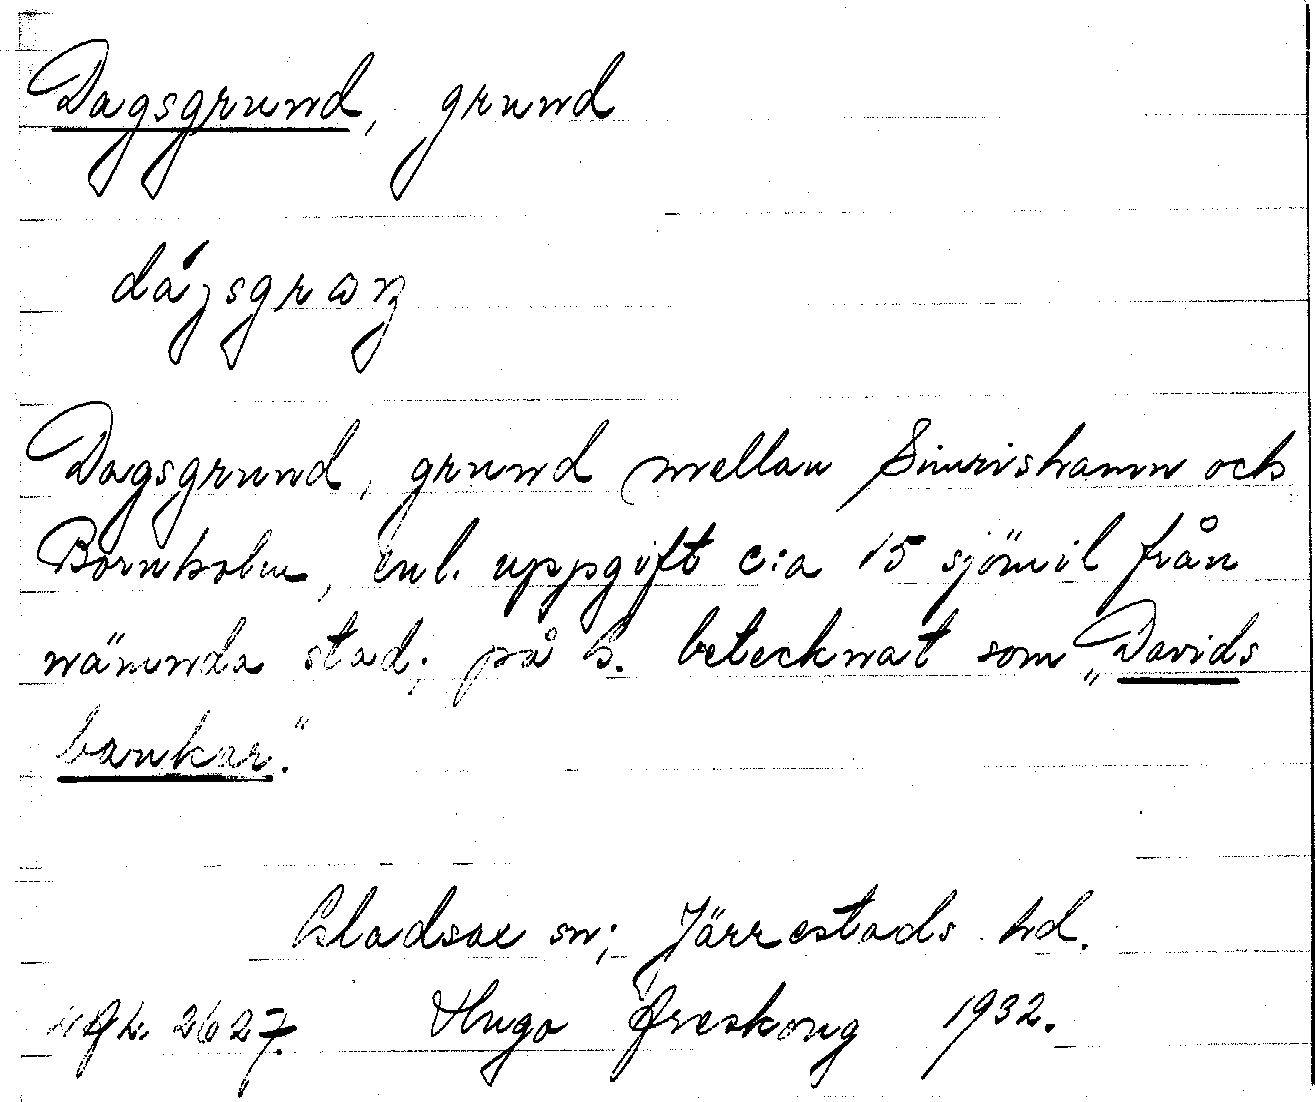 Dagsgrund, grund
Dagsgrund, grund mellan Simrishamn och
Bornholm, enl. uppgift c:a 15 sjömil från
nämnda stad; på S. betecknat som „Davids
bankar."
Gladsax sn; Järrestads hd.
2627. Hugo Areskoug 1932.